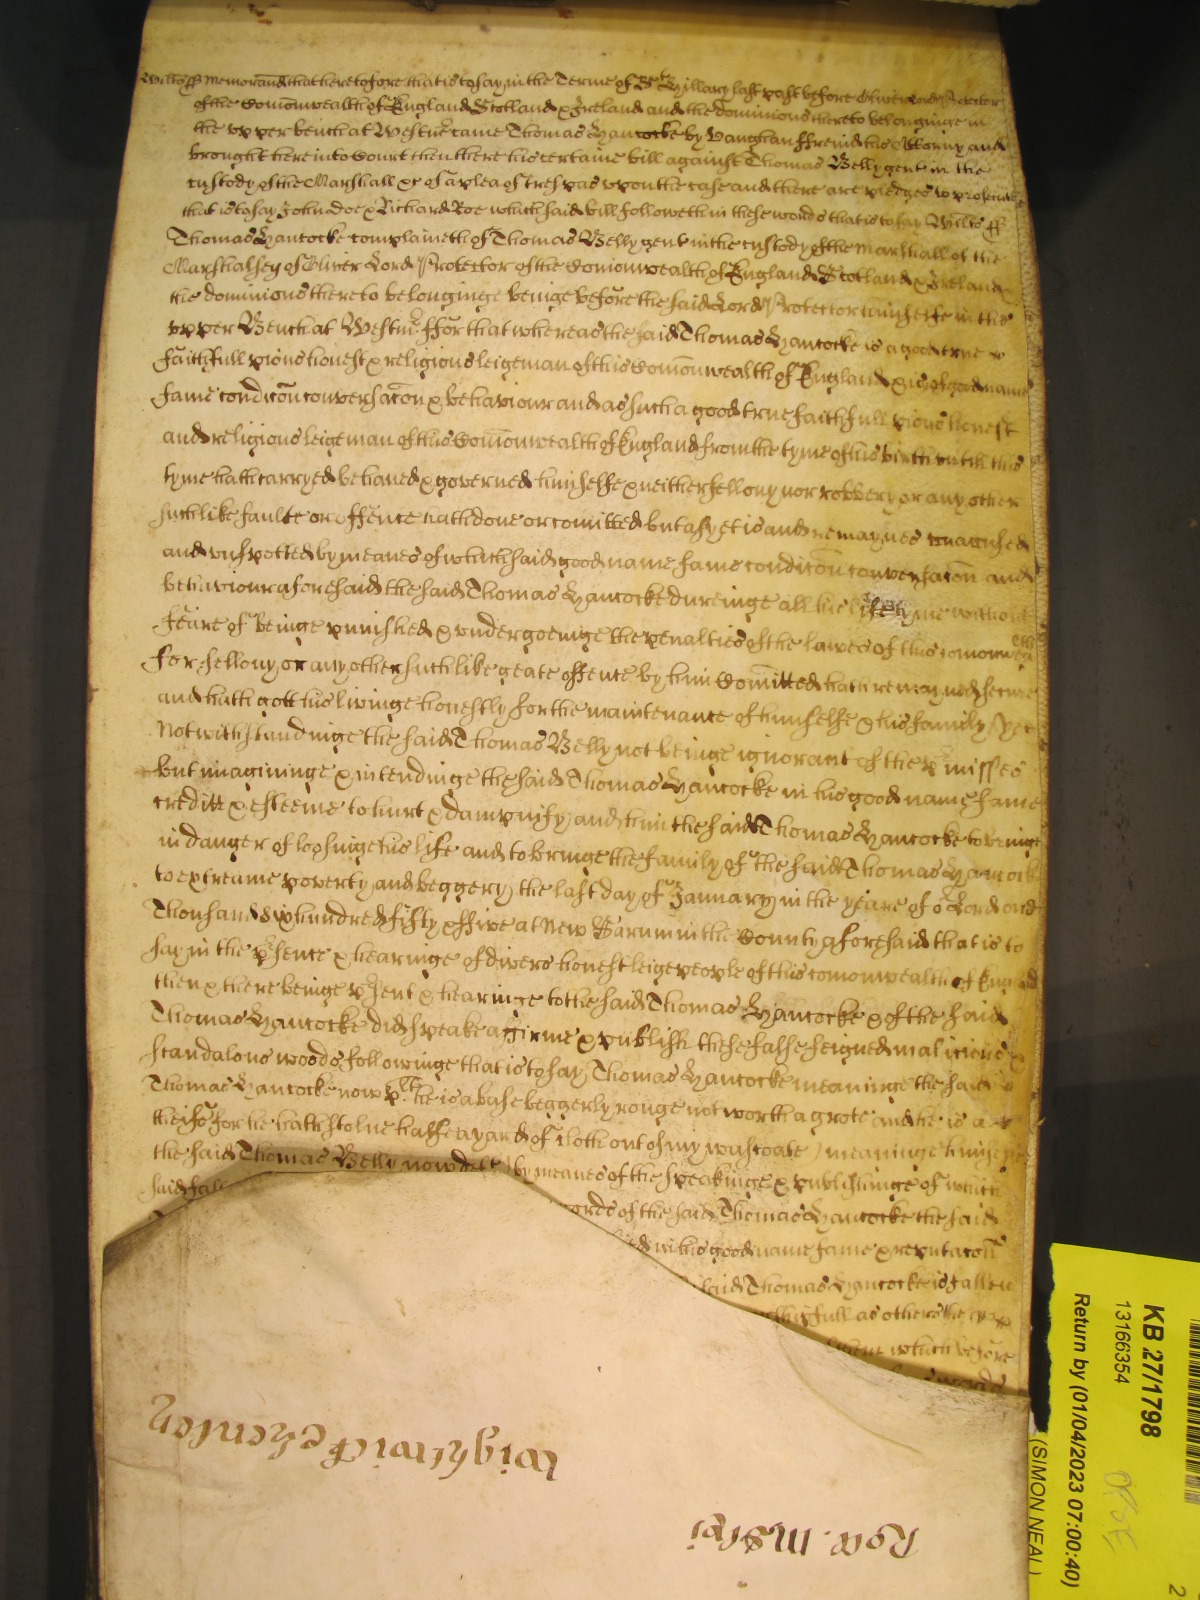 Wiltes ss Memorand that heretofore that is to say in the Terme of St Hillary last past before Oliver Lord Protector
of the Comonwealth of England Scotland & Ireland and the dominions thereto belonginge in
the upper bench at Westmr came Thomas Hancocke by Vaughan ffreind his Attorny and
brought here into Court then there his certaine bill against Thomas Belly gent in the
custody of the Marshall &c of a plea of trespas upon the case and there are pledges to prosecute
that is to say John Doe & Richard Roe which said bill followeth in these words that is to say Wilts ss
Thomas Hancocke complaineth of Thomas Belly gent in the custody of the Marshall of the
Marshalsey of Oliver Lord Protector of the Comonwealth of England Scotland & Ireland &
the dominions thereto belonginge beinge before the said Lord Protector himselfe in the
upper Bench at Westmr ffor that whereas the said Thomas Hancocke is a good true &
faithfull pious honest & religious leigeman of this Comonwealth of England & is of good name
fame condicõn conversacõn & behaviour and as such a good true faithfull pious honest
and religious leigeman of this Comonwealth of England from the tyme of his birth untill this
tyme hath carryed behaued & governed himselfe & neither fellony nor robbery or any other
such like faulte or offence hath done or comitted but as yet is and remaynes
and unspotted by meanes of which said good name fame condicõn conversacõn and
behaviour aforesaid the said Thomas Hancocke dureinge all his life tyme without
feare of beinge punished & undergoeinge the penalties of the lawes of this comonwealth
for fellony or any other such like greate offence by him Comitted hath remayned secure
and hath gott his livinge honestly for the maintenance of himselfe & his family Yet
Notwithstandinge the said Thomas Belly not beinge ignorant of the p'misses
but imagininge & intendinge the said Thomas Hancocke in his good name fame
creditt & esteeme to hurt & dampnify and him the said Thomas Hancocke to bringe
in danger of loosinge his life and to bringe the family of the said Thomas Hancocke
to extreame poverty and beggery the last day of January in the yeare of or Lord one
Thousand six hundred fifty & ffive at New Sarum in the County aforesaid that is to
say in the p'sence & hearinge of divers honest leige people of this comonwealth of England
then & there beinge p'sent & hearinge to the said Thomas Hancocke & of the said
Thomas Hancocke did speake affirme & publish these false feigned malicious &
scandalous woods followinge that is to say Thomas Hancocke meaninge the said
Thomas Hancocke now plt he is a base beggerly rouge not worth a grote and he is a
theife for he hath stolne halfe a yard of cloth out of my wastcoate meaninge himselfe
the said Thomas Belly now deft by meanes of the speakinge & publishinge of which
said fal
ords of the said Thomas Hancocke the said
ed in his good name fame & reputacõn
said Thomas Hancocke is fallen
full as others the
which before
Wightwicke
Row. Mich
KB 27/1798
13166354
Return by (01/04/2023 07:00:40)
(SIMON NEAL)